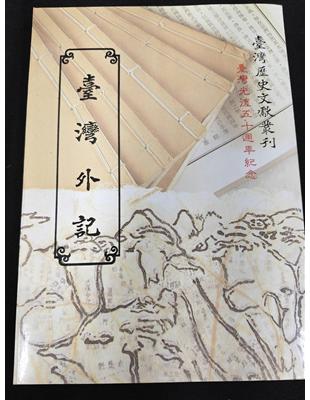 臺灣歷史文獻叢刊
臺灣光復五十週年紀念
臺灣外記